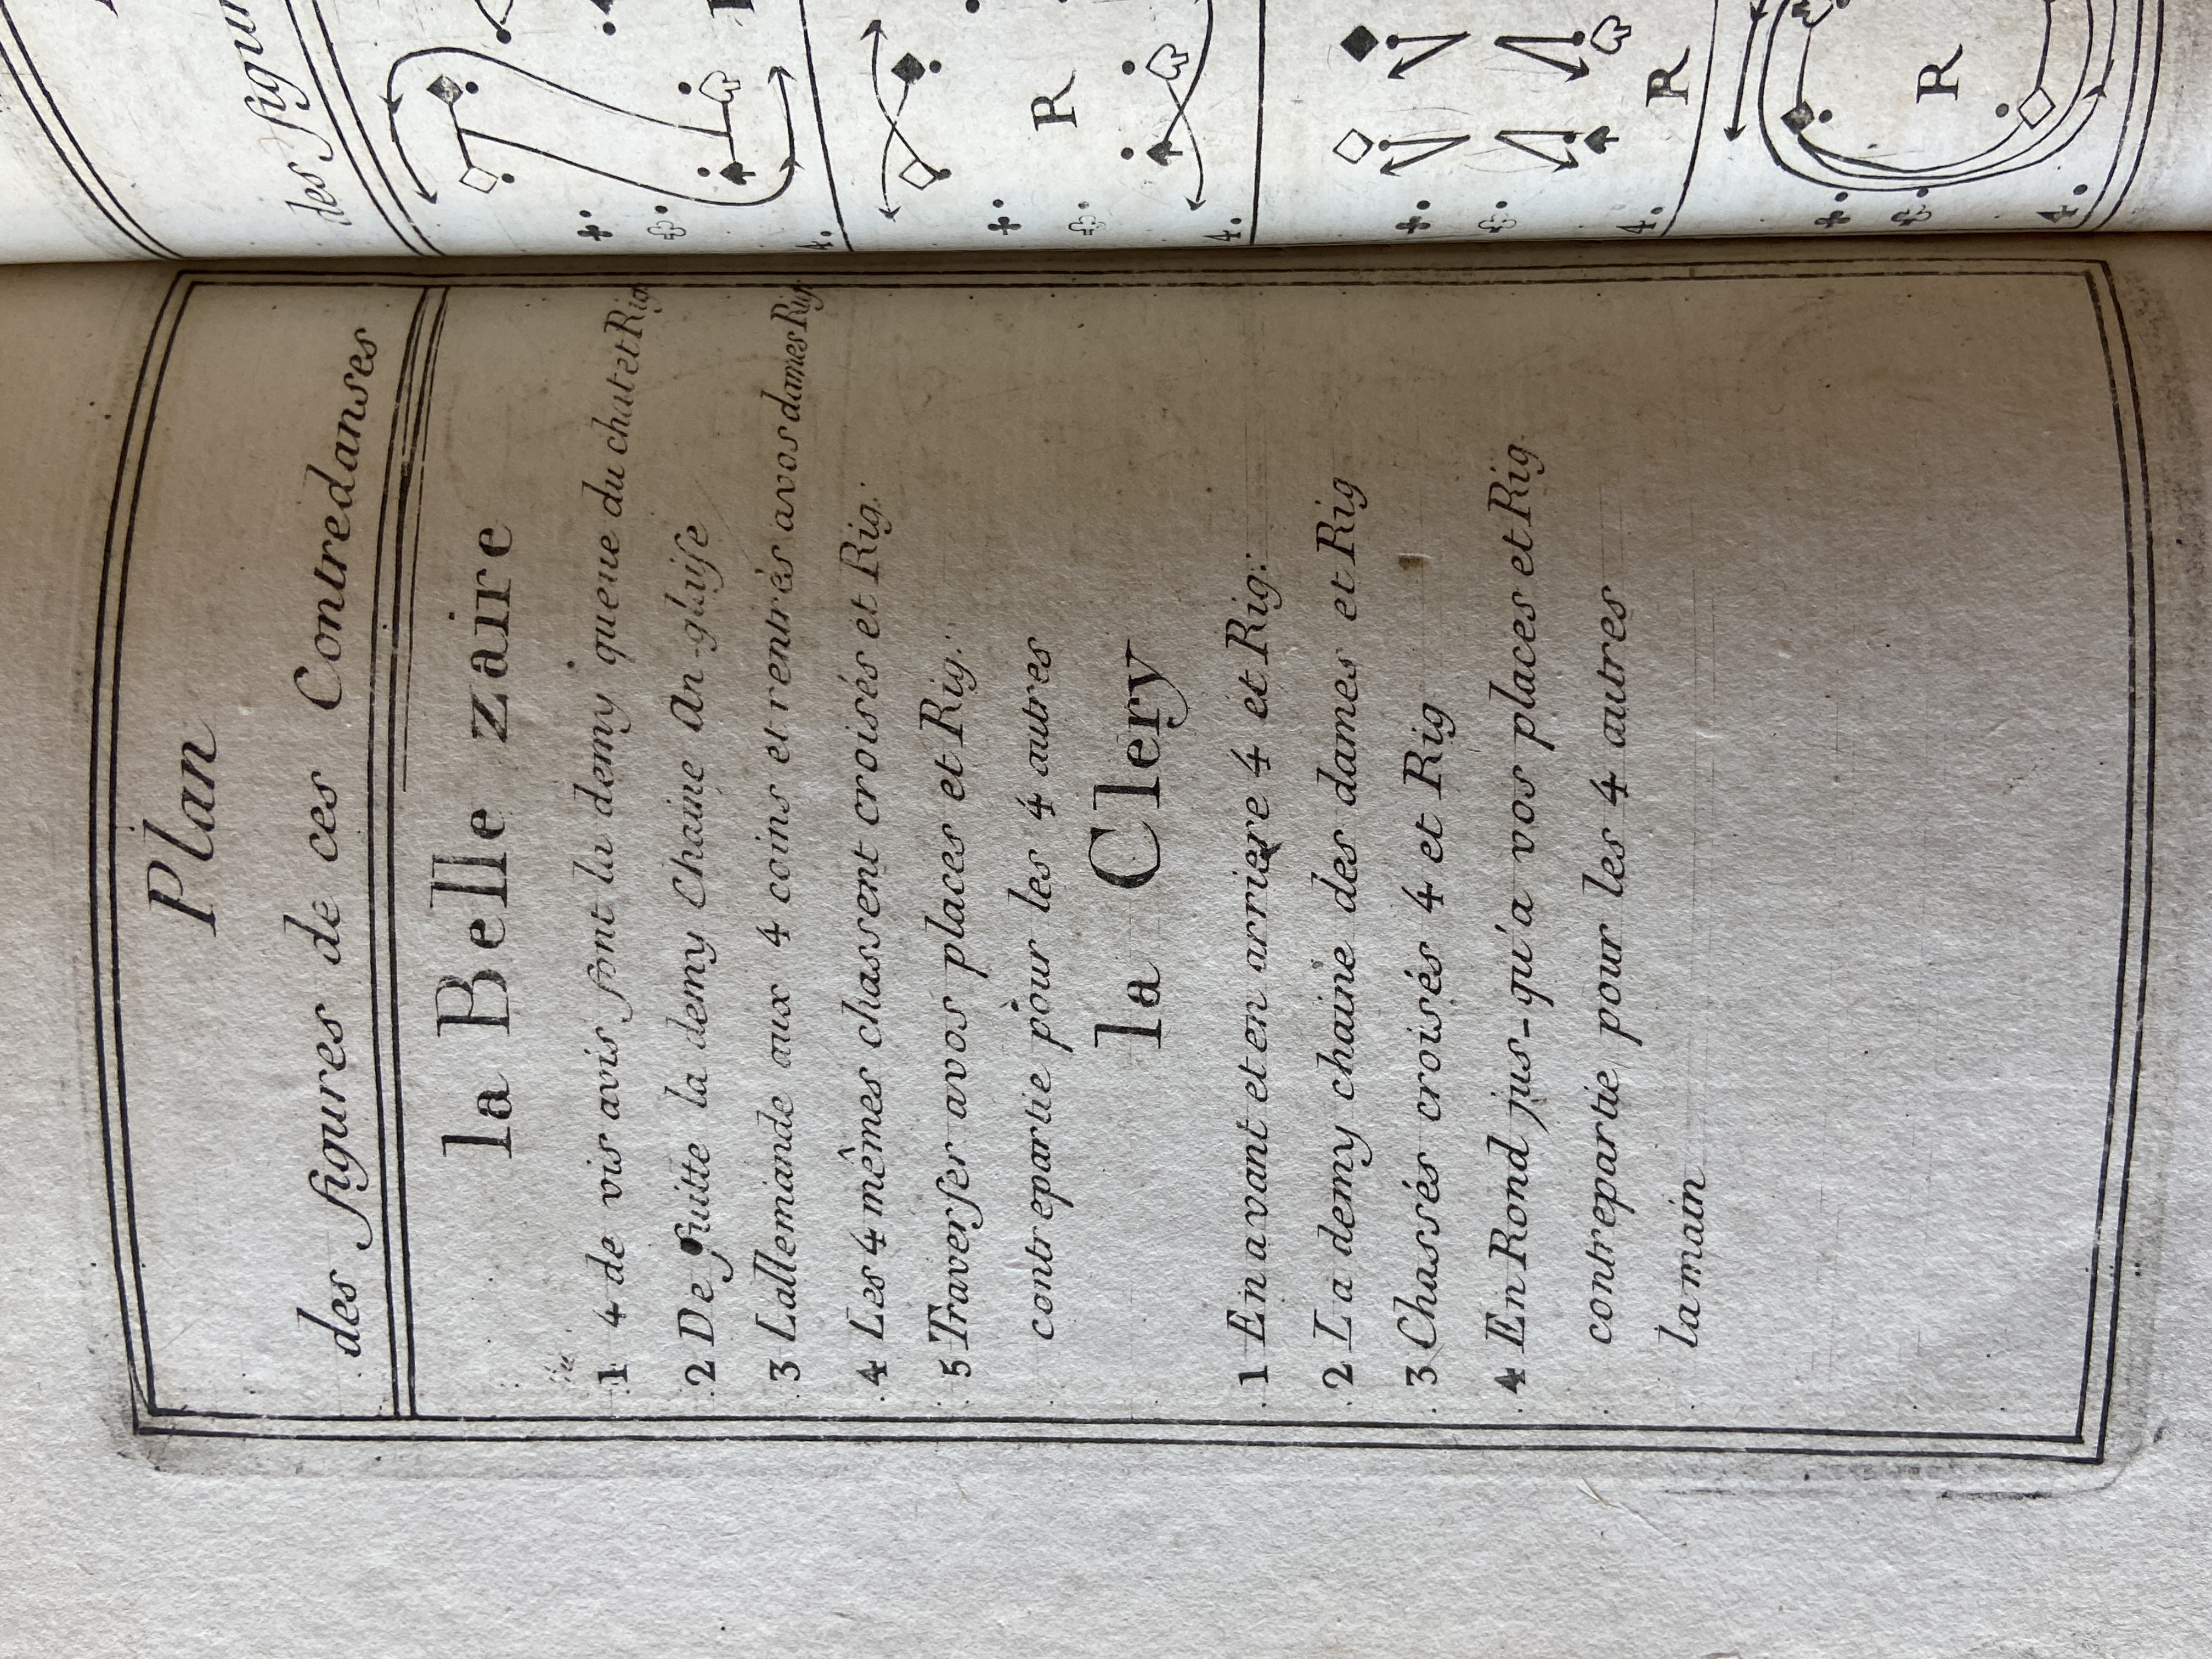 Plan
des figures de ces Contredanses
la Belle zaire
1 4 de vis avis font la demy queue du chat et Rig
2 De suitte la demy Chaine An-glaise
3 Lallemande aux 4 coins et rentrés avos dames Rig.
4 Les 4 mêmes chassent croisés et Rig.
5 Traverser avos places et Rig.
contrepartie pour les 4 autres
la Clery
1 En avant et en arriere 4 et Rig.
2 La demy chaine des dames et Rig
3 Chassés croisés 4 et Rig
4 En Rond jus-qu'a vos places et Rig.
contrepartie pour les 4 autres
la main
des figur
R
4.
R
4.
R
4.
R
4.